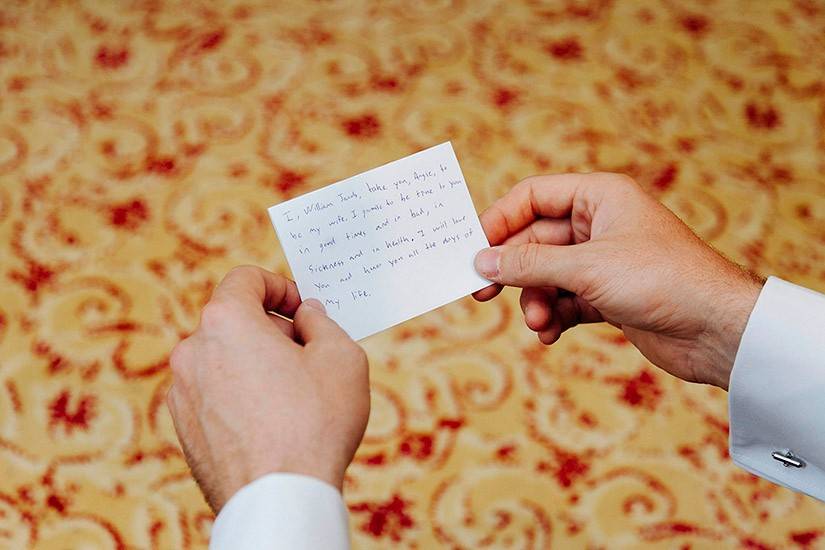 I, William Jacob, take you, Angie, to
be my wife. I promise to be true to you
in good times and in bad, in
sickness and in health. I will love
you and honor you all the days of
my life.